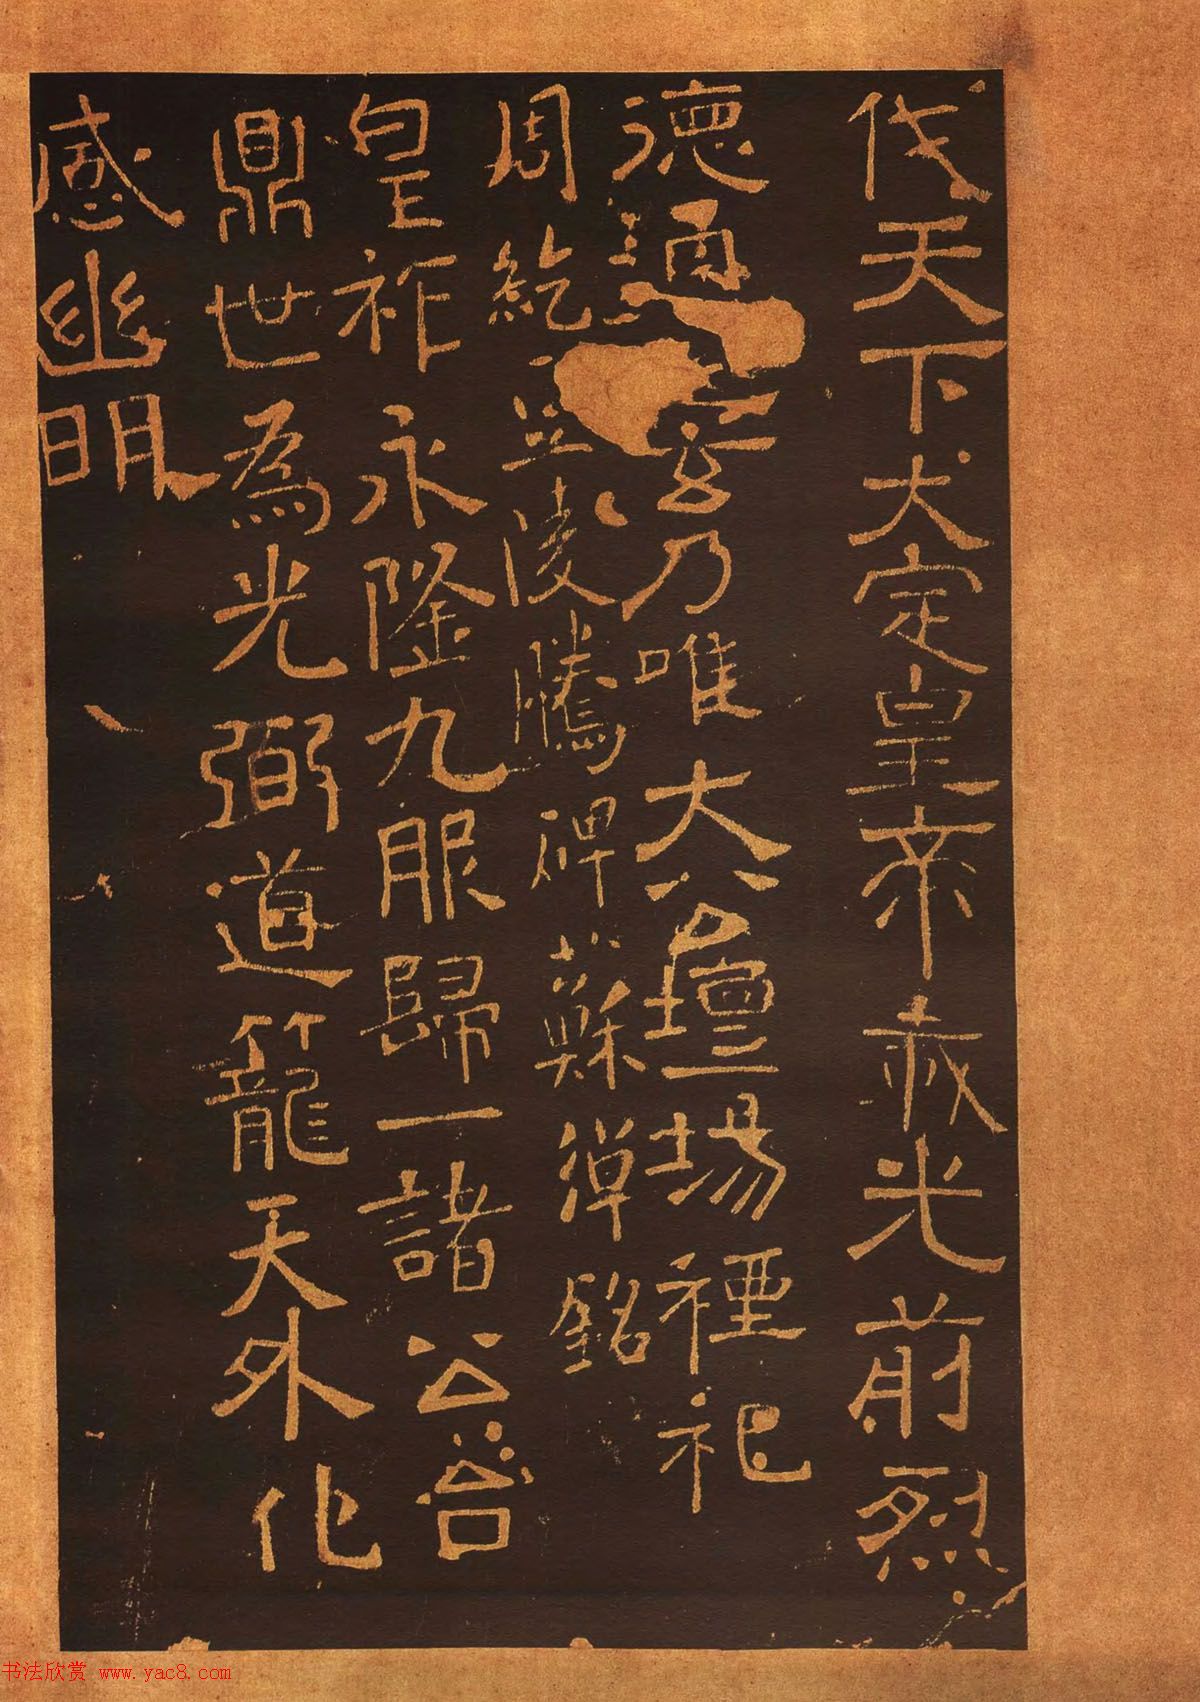 伐天下大定皇帝光前烈
德通玄乃唯大壇場禋祀
周紇豆陵騰碑蘇彈銘
皇祚永隆九服歸一諸公台
鼎世為光弼道籠天外化
感幽明
书法欣赏 www.yac8.com